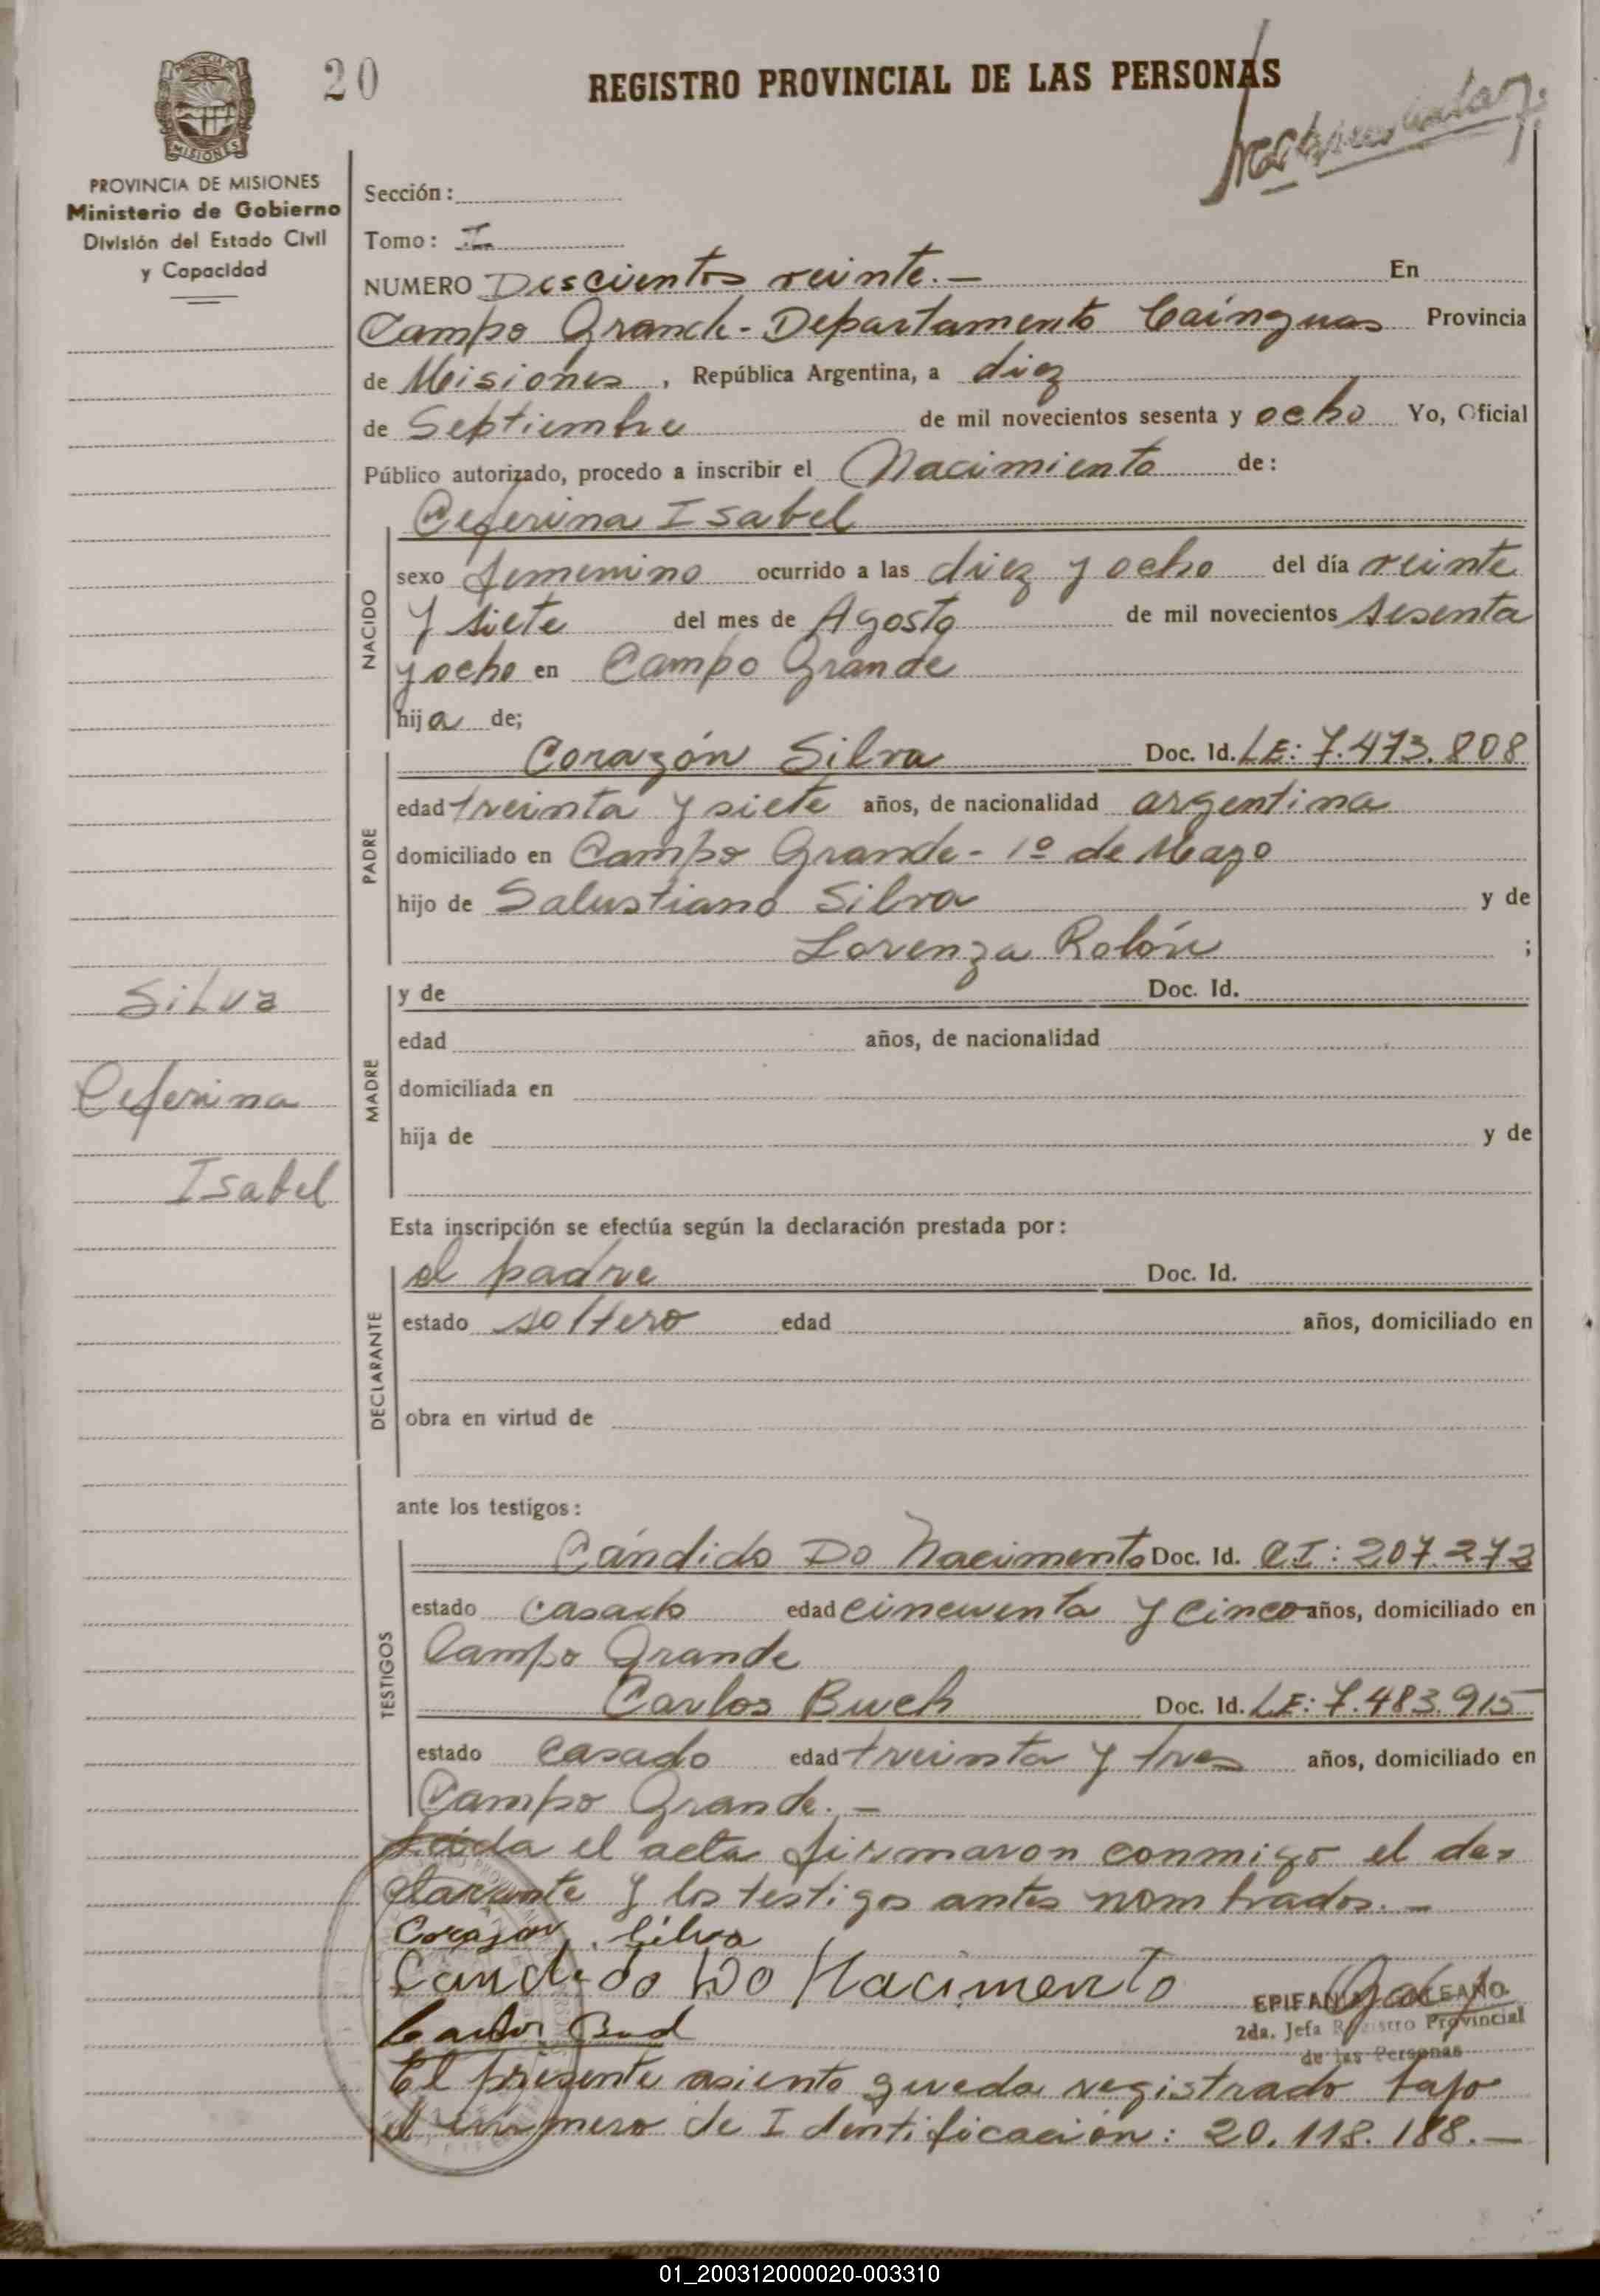 20
REGISTRO PROVINCIAL DE LAS PERSONAS
MISIONES
PROVINCIA DE MISIONES
Ministerio de Gobierno
División del Estado Civil
y Capacidad
Sección:
Tomo: I
NUMERO Doscientos veinte.— En
Campo Grande - Departamento Cainguas Provincia
de Misiones, República Argentina, a diez
de Septiembre de mil novecientos sesenta y ocho Yo, Oficial
Público autorizado, procedo a inscribir el Nacimiento de:
NACIDO
Ceferina Isabel
sexo femenino ocurrido a las diez y ocho del día veinte
y siete del mes de Agosto de mil novecientos sesenta
y ocho en Campo Grande
hija de;
PADRE
Corazón Silva Doc. Id. LE: 7.473.808
edad treinta y siete años, de nacionalidad argentina
domiciliado en Campo Grande - 1º de Mayo
hijo de Salustiano Silva y de
Lorenza Rolón ;
MADRE
y de Doc. Id.
edad años, de nacionalidad
domiciliada en
hija de y de
Silva
Ceferina
Isabel
Esta inscripción se efectúa según la declaración prestada por:
DECLARANTE
el padre Doc. Id.
estado soltero edad años, domiciliado en
obra en virtud de
ante los testigos:
TESTIGOS
Cándido Do Nacimento Doc. Id. CI: 207.273
estado casado edad cincuenta y cinco años, domiciliado en
Campo Grande
Carlos Buch Doc. Id. LE: 7.483.915
estado casado edad treinta y tres años, domiciliado en
Campo Grande.—
Leída el acta firmaron conmigo el de-
clarante y los testigos antes nombrados.—
Corazon Silva
Candido Do Nacimento
EPIFANIA GALEANO
2da. Jefa Registro Provincial
de las Personas
El presente asiento queda registrado bajo
el número de Identificación: 20.118.188.—
01_200312000020-003310